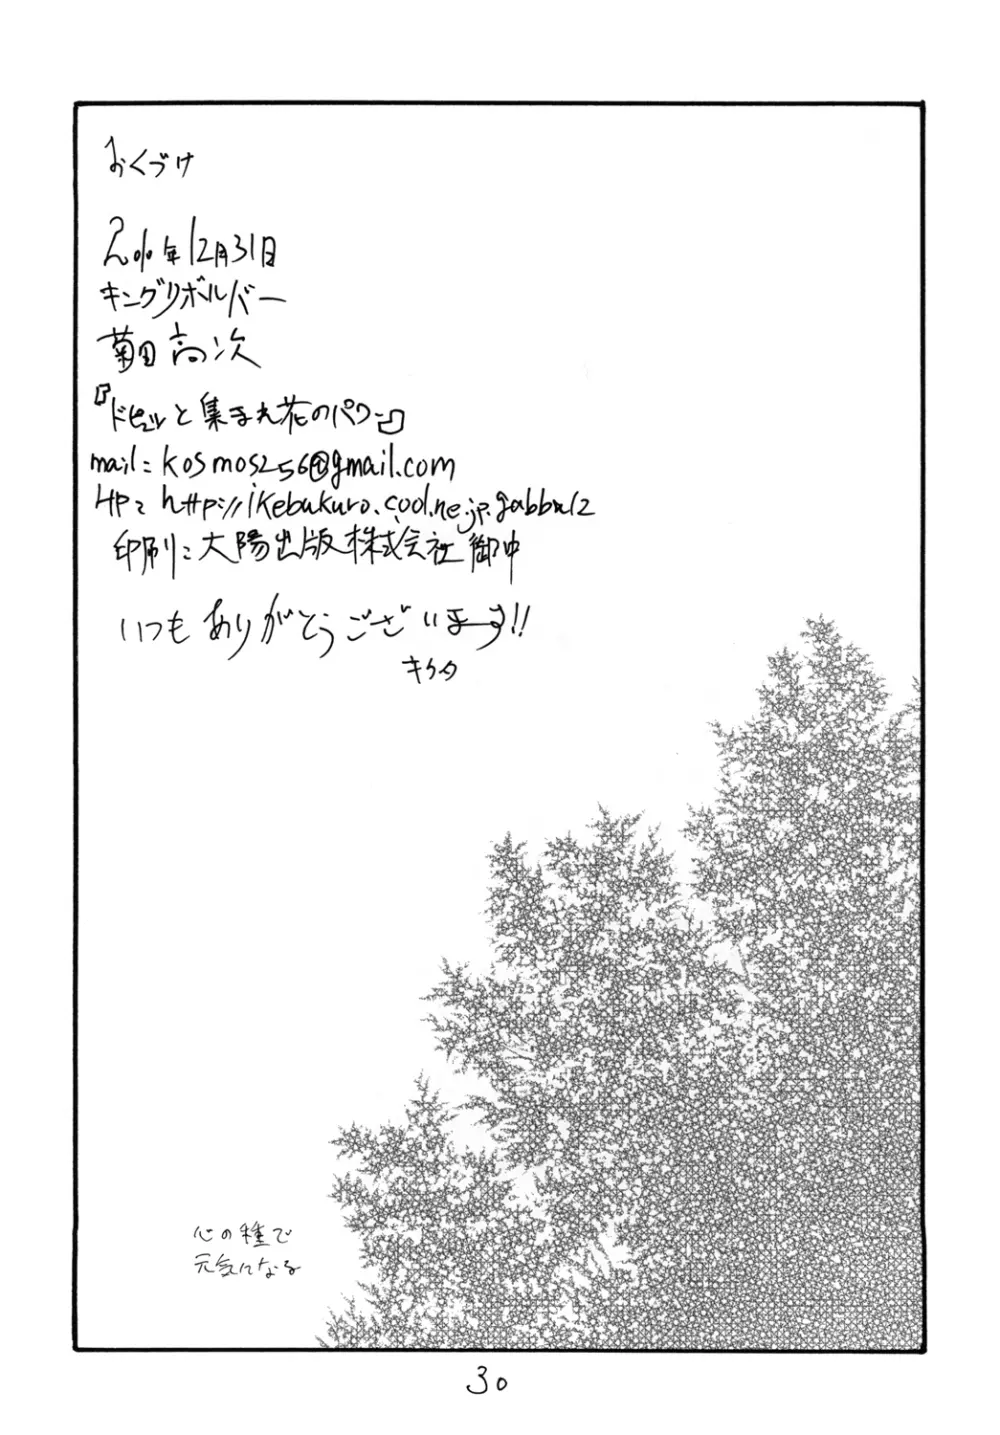 おくづけ
2010年12月31日
キングリボルバー
菊田高次
『ドピュッと集まれ花のパワー』
mail: kosmos256@gmail.com
HP: http://ikebukuro.cool.ne.jp.gabbu12
印刷: 大陽出版株式会社 御中
いつもありがとうございまーす!!
キクタ
心の種で
元気になる
30